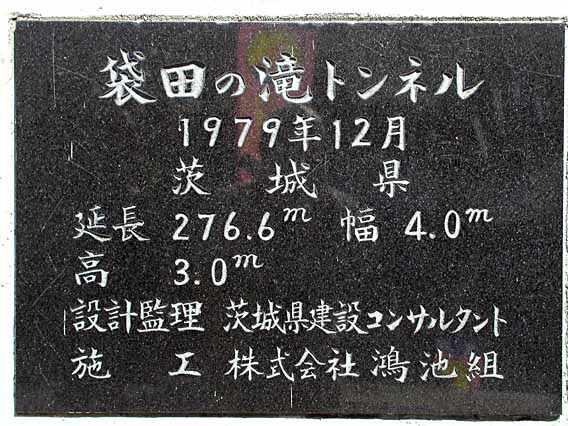 袋田の滝トンネル
1979年12月
茨城県
延長 276.6m 幅 4.0m
高 3.0m
設計監理 茨城県建設コンサルタント
施工 株式会社 鴻池組